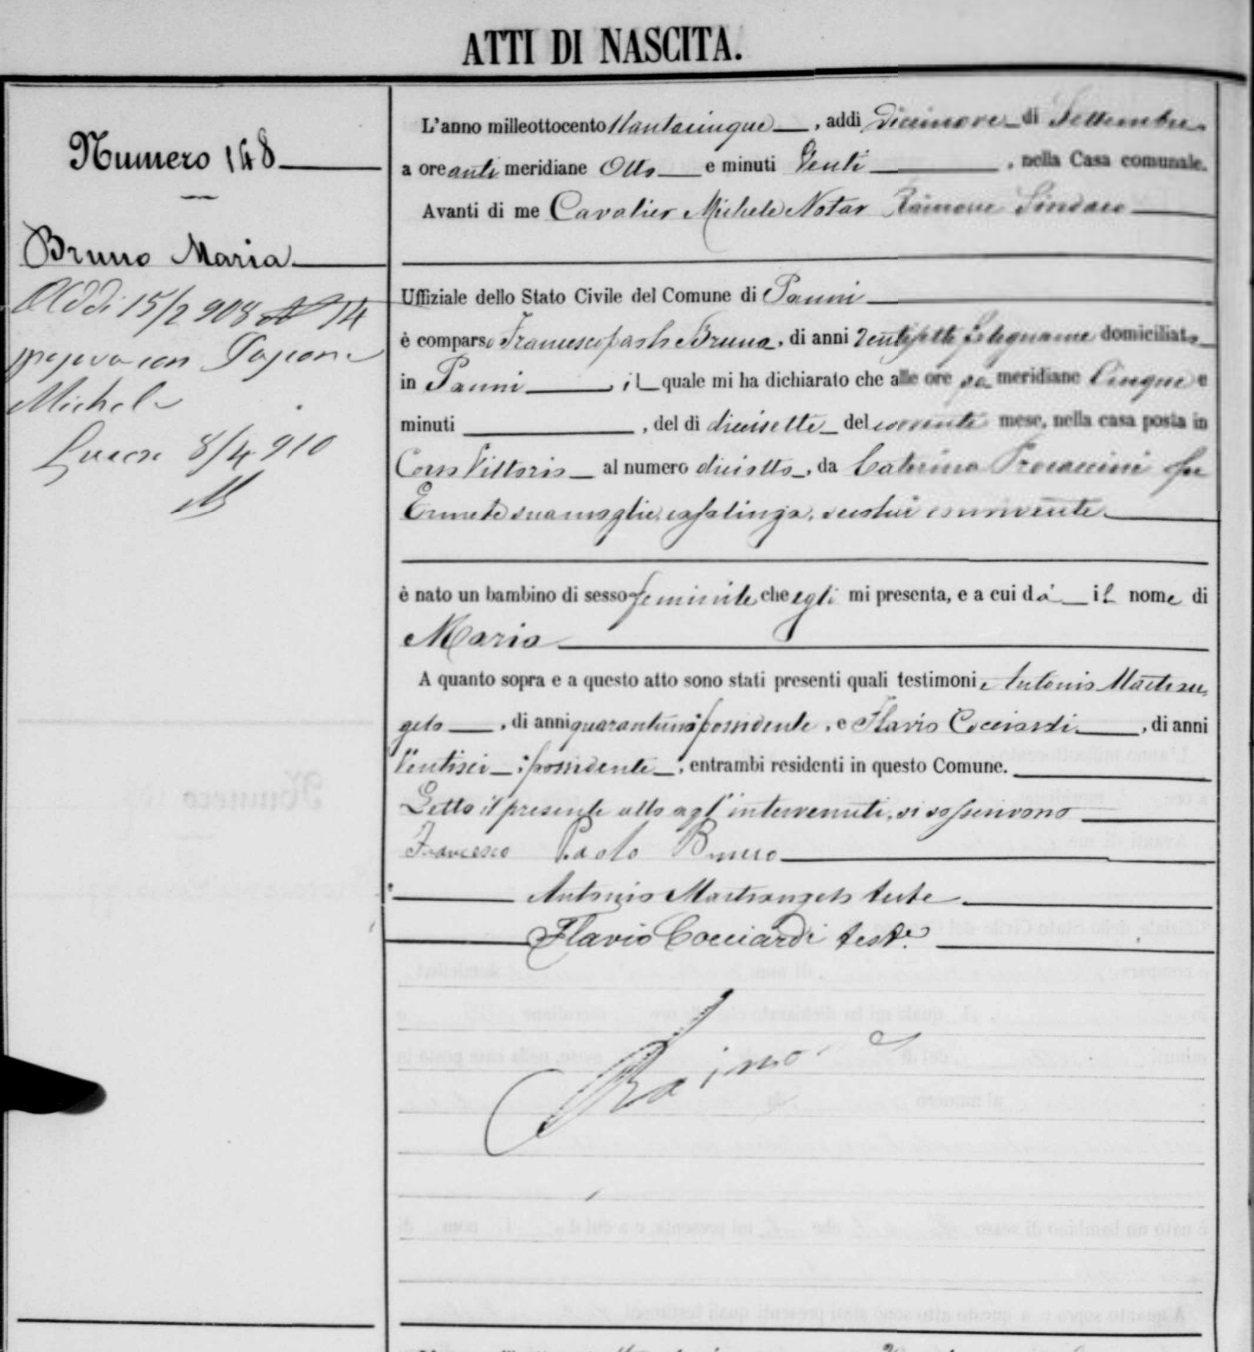 ATTI DI NASCITA.
Numero 148
Bruno Maria
Addi 15/2 908 N 14
sposava con
Michele
Lucera 8/4 910
L'anno milleottocento ottantacinque, addi diecinove di Settembre
a ore anti meridiane Otto e minuti Venti, nella Casa comunale.
Avanti di me Cavalier Michele Notar Raimone Sindaco
Uffiziale dello Stato Civile del Comune di Panni
è comparso Francesco Paolo Bruno, di anni ventisette falegname domiciliato
in Panni il quale mi ha dichiarato che alle ore po meridiane Cinque e
minuti , del di diecisette del corrente mese, nella casa posta in
Corso Vittorio al numero diciotto, da Caterina Procaccini fu
sua moglie, casalinga, seco lui convivente
è nato un bambino di sesso feminile che egli mi presenta, e a cui dà il nome di
Maria
A quanto sopra e a questo atto sono stati presenti quali testimoni Antonio Mastran
gelo, di anni quarantuno possidente, e Flavio Cocciardi, di anni
Ventisei possidente, entrambi residenti in questo Comune.
Letto il presente atto agl'intervenuti, si sosscrivono
Francesco Paolo Bruno
Antonio Mastrangelo teste
Flavio Cocciardi teste